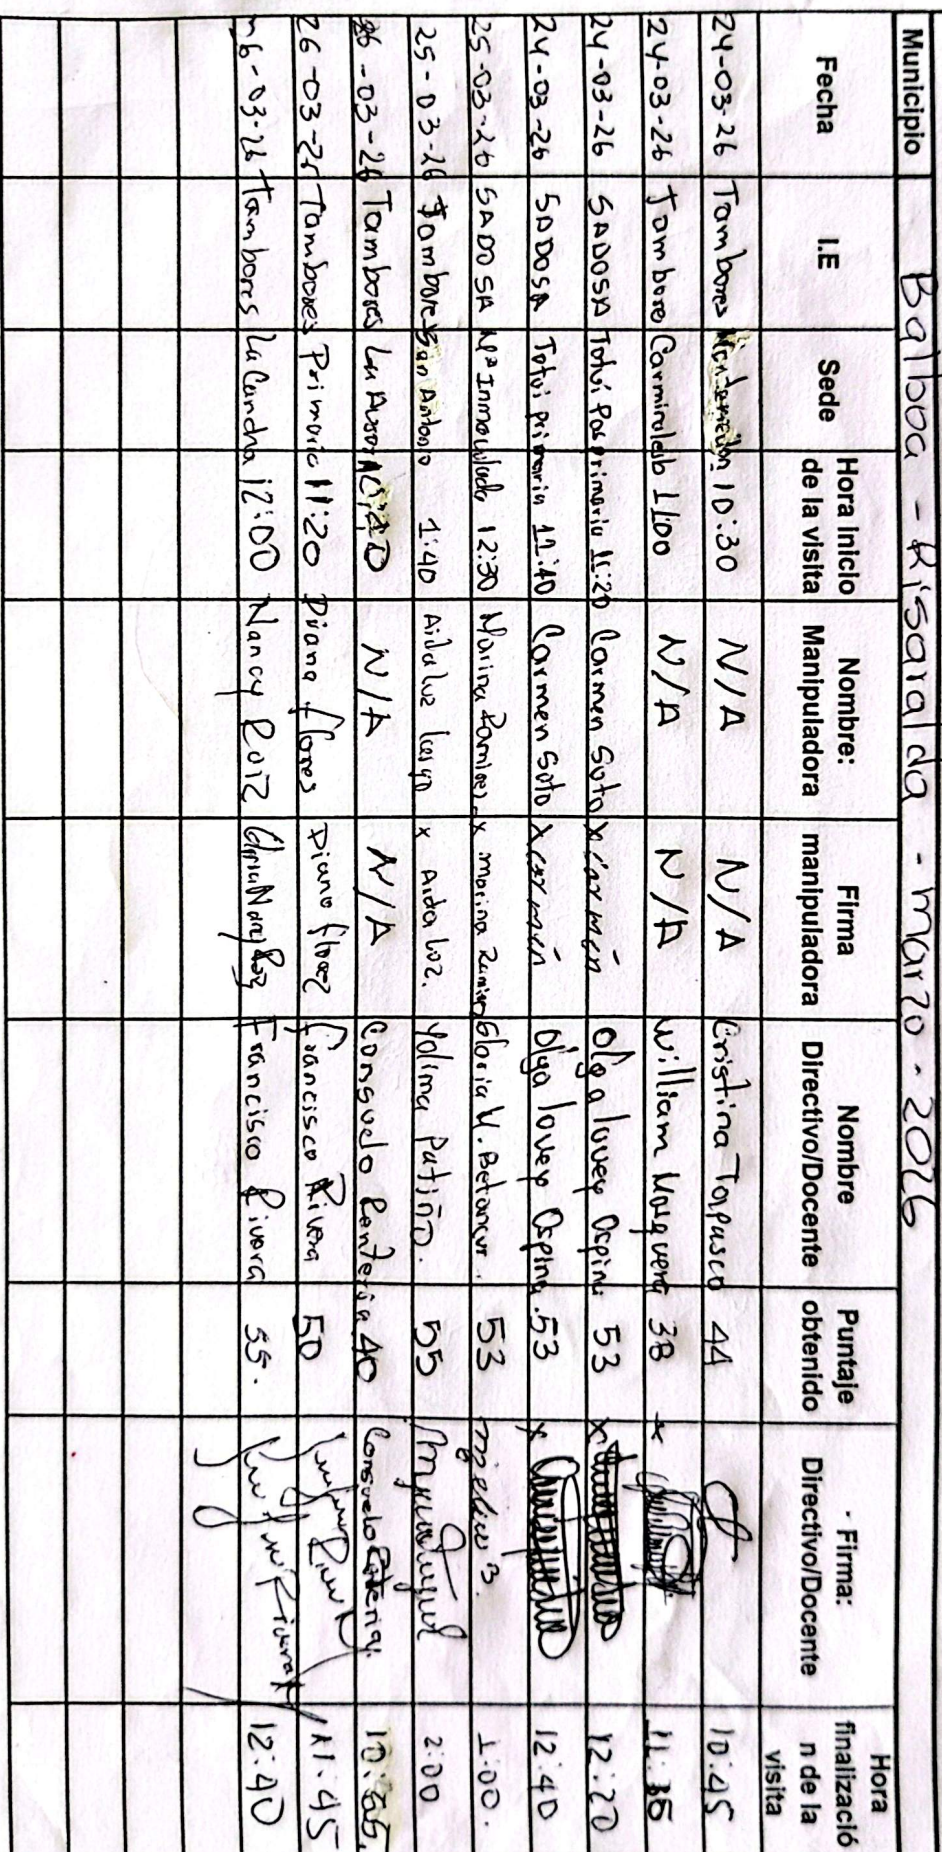 Municipio Balboa - Risaralda - marzo - 2026
Fecha I.E Sede Hora inicio de la visita Nombre: Manipuladora Firma manipuladora Nombre Directivo/Docente Puntaje obtenido - Firma: Directivo/Docente Hora finalizació n de la visita
24-03-26 Tambores 10:30 N/A N/A Cristina Tapasco 44 10:45
24-03-26 Tambores 11:00 N/A N/A William Mosquera 38 11:35
24-03-26 SADOSA Totui Posprimaria 11:20 Carmen Soto x Carmen Olga lucey Ospina 53 x 12:20
24-03-26 SADOSA Totui primaria 11:40 Carmen Soto x Carmen Olga lucey Ospina 53 x 12:40
25-03-26 SADOSA Mª Inmaculada 12:30 Marina Ramirez x marina Ramirez Gloria M. Betancur. 53 1:00.
25-03-26 Tambores San Antonio 1:40 Aida luz x Aida luz. Yolima Patiño. 55 2:00
26-03-26 Tambores La N/A N/A Consuelo Renteria 40 Consuelo Renteria.
26-03-26 Tambores Primaria 11:20 Diana flores Diana florez francisco Rivera 50 11:45
26-03-26 Tambores La Cancha 12:00 Nancy Ruiz Francisco Rivera 55. 12:40